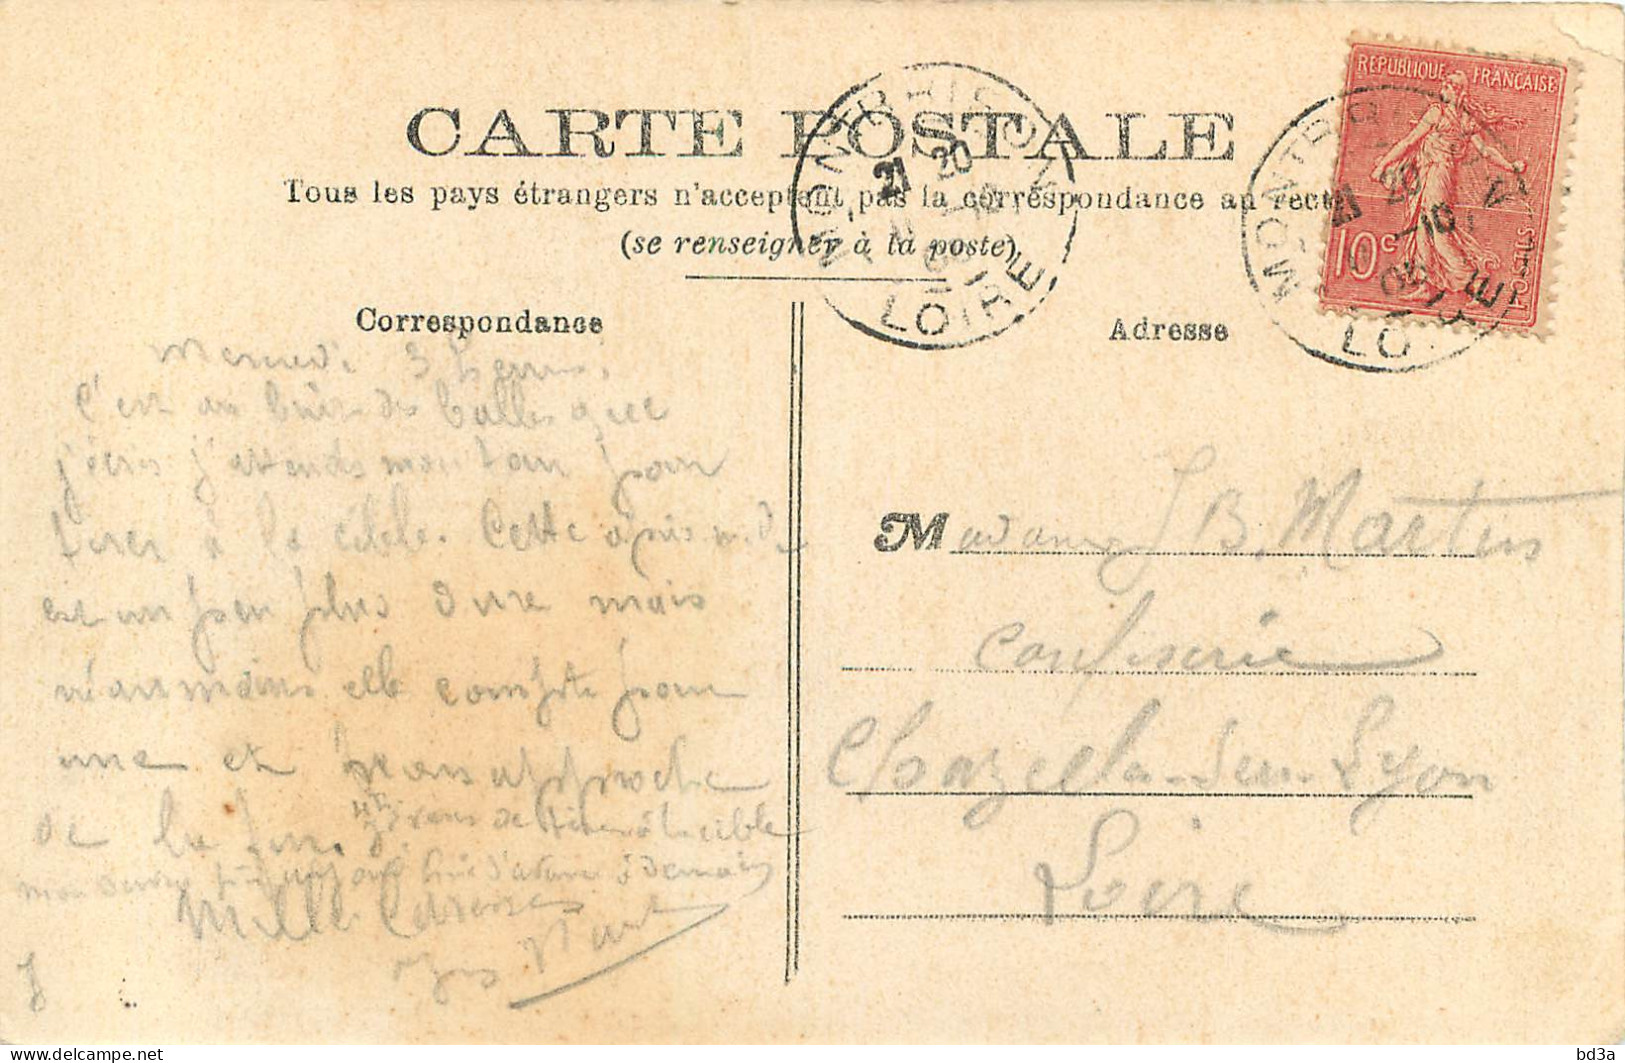 CARTE POSTALE
Tous les pays étrangers n'acceptent pas la correspondance au recto
(se renseigner à la poste)
MONTBRISON
21 20
10
05
LOIRE
REPUBLIQUE FRANÇAISE
10c
POSTES
MONTBRISON
21 20
10
05
LOIRE
Correspondance
Mercredi 3 heures.
C'est au des balles que
j'écris j'attends mon tour pour
tirer à la cible. Cette après midi
est un peu plus dure mais
néanmoins elle compte pour
une et nous approche
de la fin. Je viens de tirer à la cible
mon demain
Mille Caresses
Adresse
Madame J B. Martin
Confiserie
Chazelles-sur-Lyon
Loire
bd3a